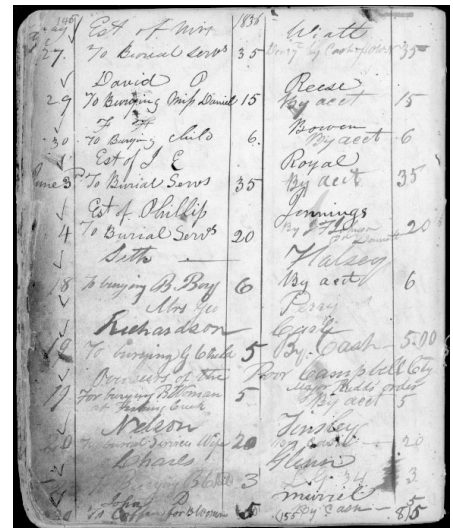 Est of Mrs 1836 Wiatt
27 To Burial Servs 35 By Cash 35
David P Reese
29 To Burying Miss Daniel 15 By acct 15
Bowen
30 To Burying child 6. By acct 6
Est of J E Royal
June 3d To Burial Servs 35 By acct 35
Est of Phillip Jennings
4 To Burial Servs 20 By 20
Seth Halsey
18 To burying B. Boy 6 By acct 6
Mrs Geo Perry
Richardson Cash
19 To burying G Child 5 By Cash 5.00
of the Poor Campbell Cty
19 For burying B Woman 5 order
at Creek By acct 5
Nelson Tinsley
20 To burial Wife 20 By Cash 20
Charles Glenn
To Burying G Child 3 3.
John D Murrel
30 To Coffin for B Woman 5 By Cash 5